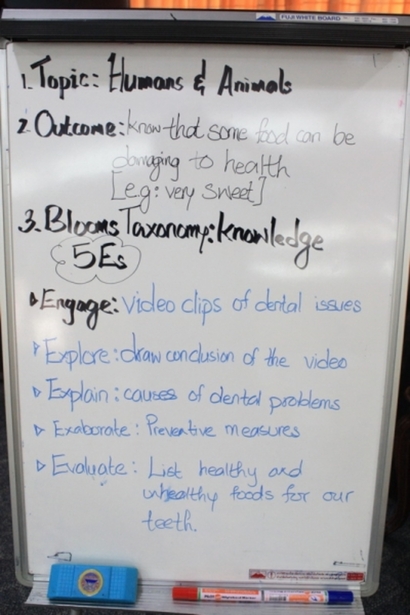 FUJI WHITE BOARD
1. Topic: Humans & Animals
2. Outcome: know that some food can be
damaging to health
[e.g: very sweet]
3. Blooms Taxonomy: knowledge
5Es
Engage: video clips of dental issues
Explore: draw conclusion of the video
Explain: causes of dental problems
Exaborate: Preventive measures
Evaluate: List healthy and
unhealthy foods for our
teeth.